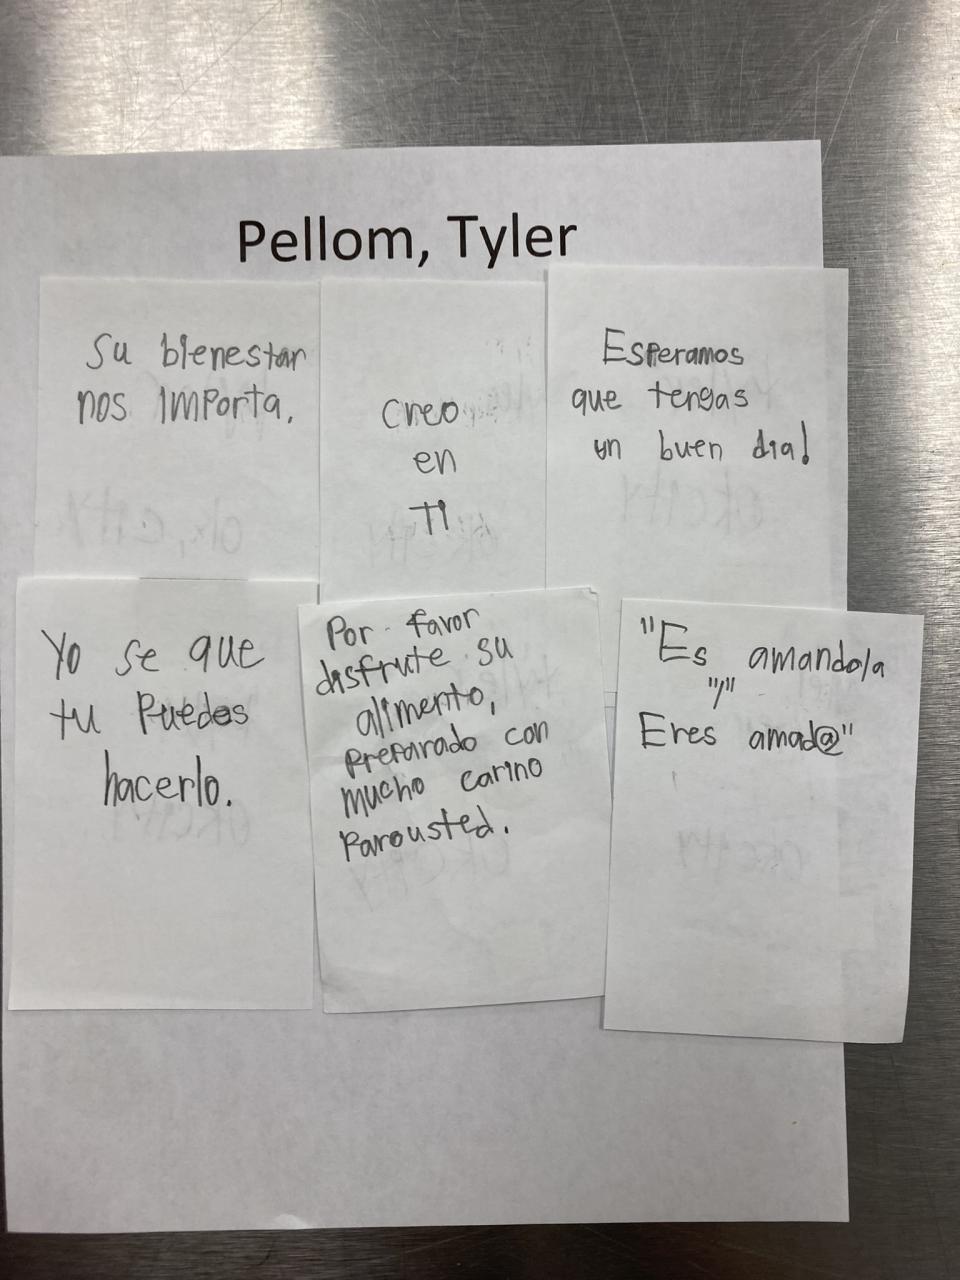 Pellom, Tyler
Su bienestar
nos importa.
Creo
en
Ti
Esperamos
que tengas
un buen dia!
Yo se que
tu Puedes
hacerlo.
Por favor
disfrute su
alimento,
preparado con
mucho carino
Parousted.
"Es amando/a
"/"
Eres amad@"